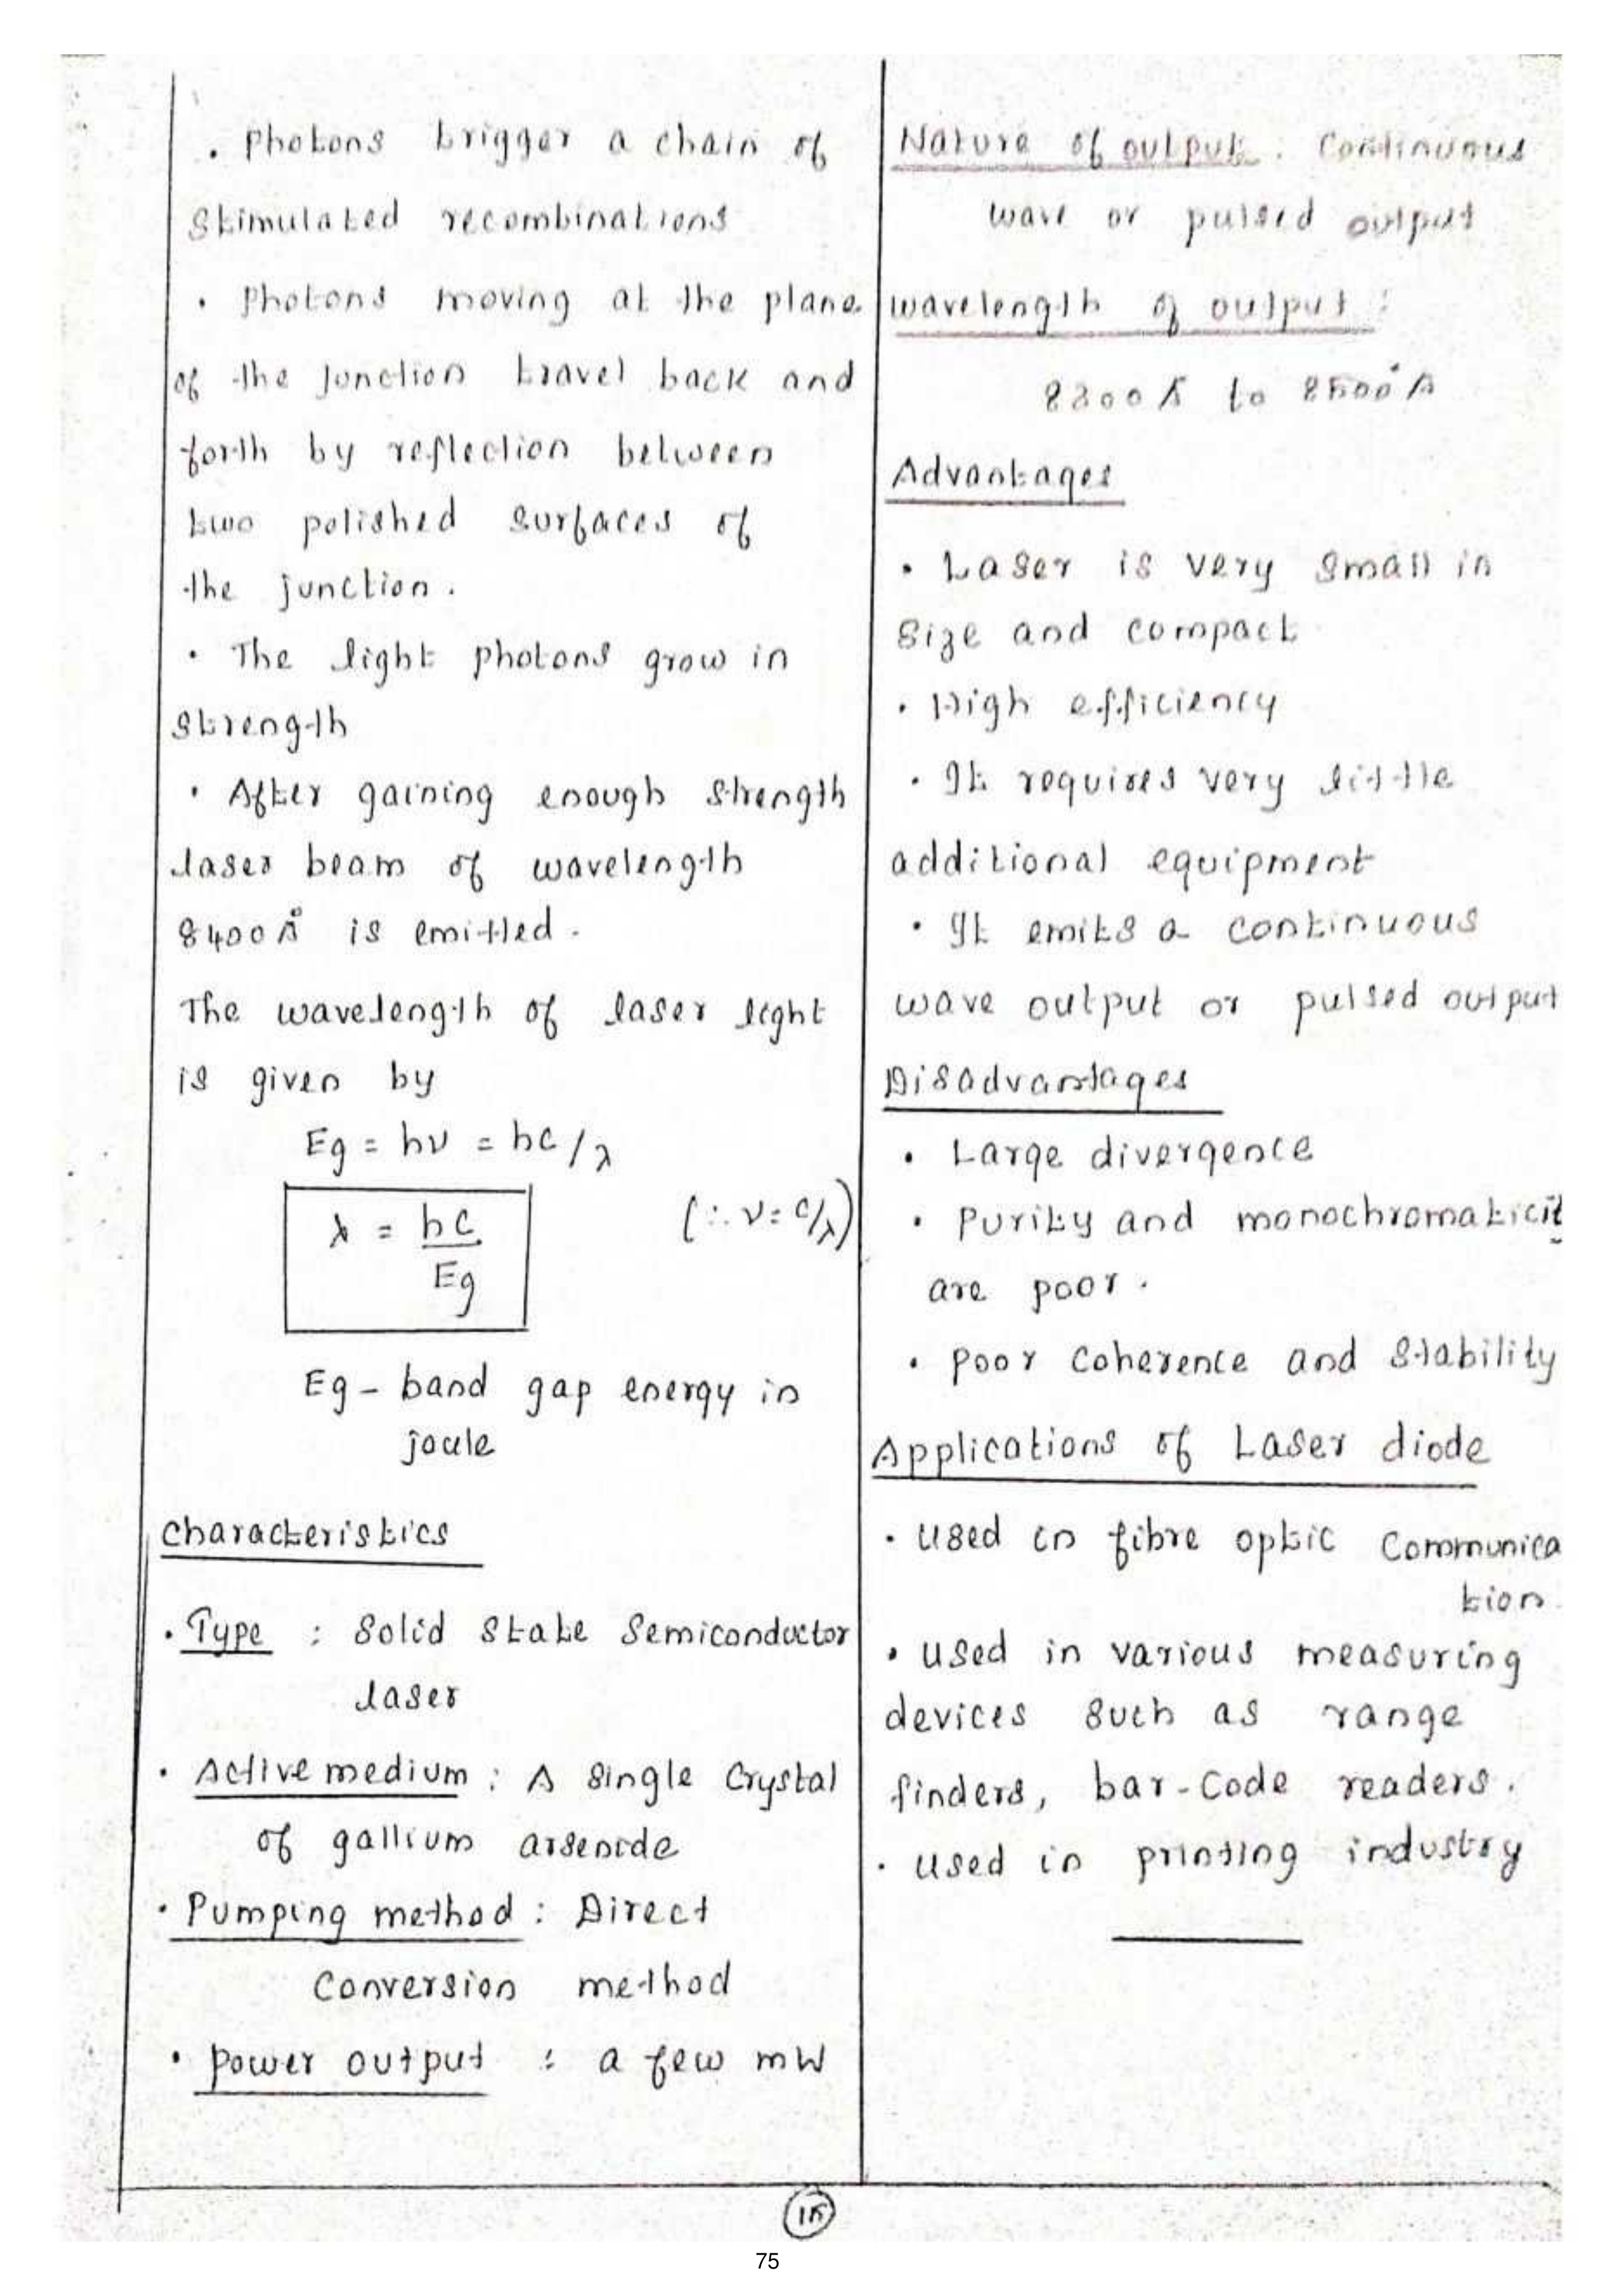 . Photons trigger a chain of
stimulated recombinations
. Photons moving at the plane
of the junction travel back and
forth by reflection between
two polished surfaces of
the junction.
. The light photons grow in
strength
. After gaining enough strength
laser beam of wavelength
8400Å is emitted.
The wavelength of laser light
is given by
Eg = hν = hc/λ
λ = hc/Eg (∴ ν = c/λ)
Eg - band gap energy in
joule
Characteristics
. Type : Solid State Semiconductor
laser
. Active medium : A single Crystal
of gallium arsenide
. Pumping method : Direct
Conversion method
. Power output : a few mW
Nature of output : Continuous
wave or pulsed output
wavelength of output :
8300Å to 8500Å
Advantages
. Laser is very small in
size and compact
. High efficiency
. It requires very little
additional equipment
. It emits a continuous
wave output or pulsed output
Disadvantages
. Large divergence
. Purity and monochromaticit
are poor.
. Poor coherence and stability
Applications of Laser diode
. Used in fibre optic Communica
tion.
. Used in various measuring
devices such as range
finders, bar-code readers.
. Used in printing industry
15
75